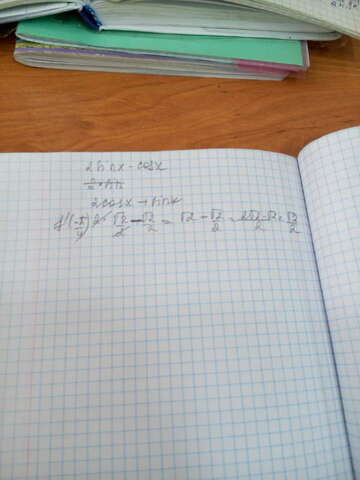 2sinx - cosx
2cosx + sinx
f'(-π/4) 2·√2/2 - √2/2 = √2 - √2/2 = 2√2-√2/2 = √2/2